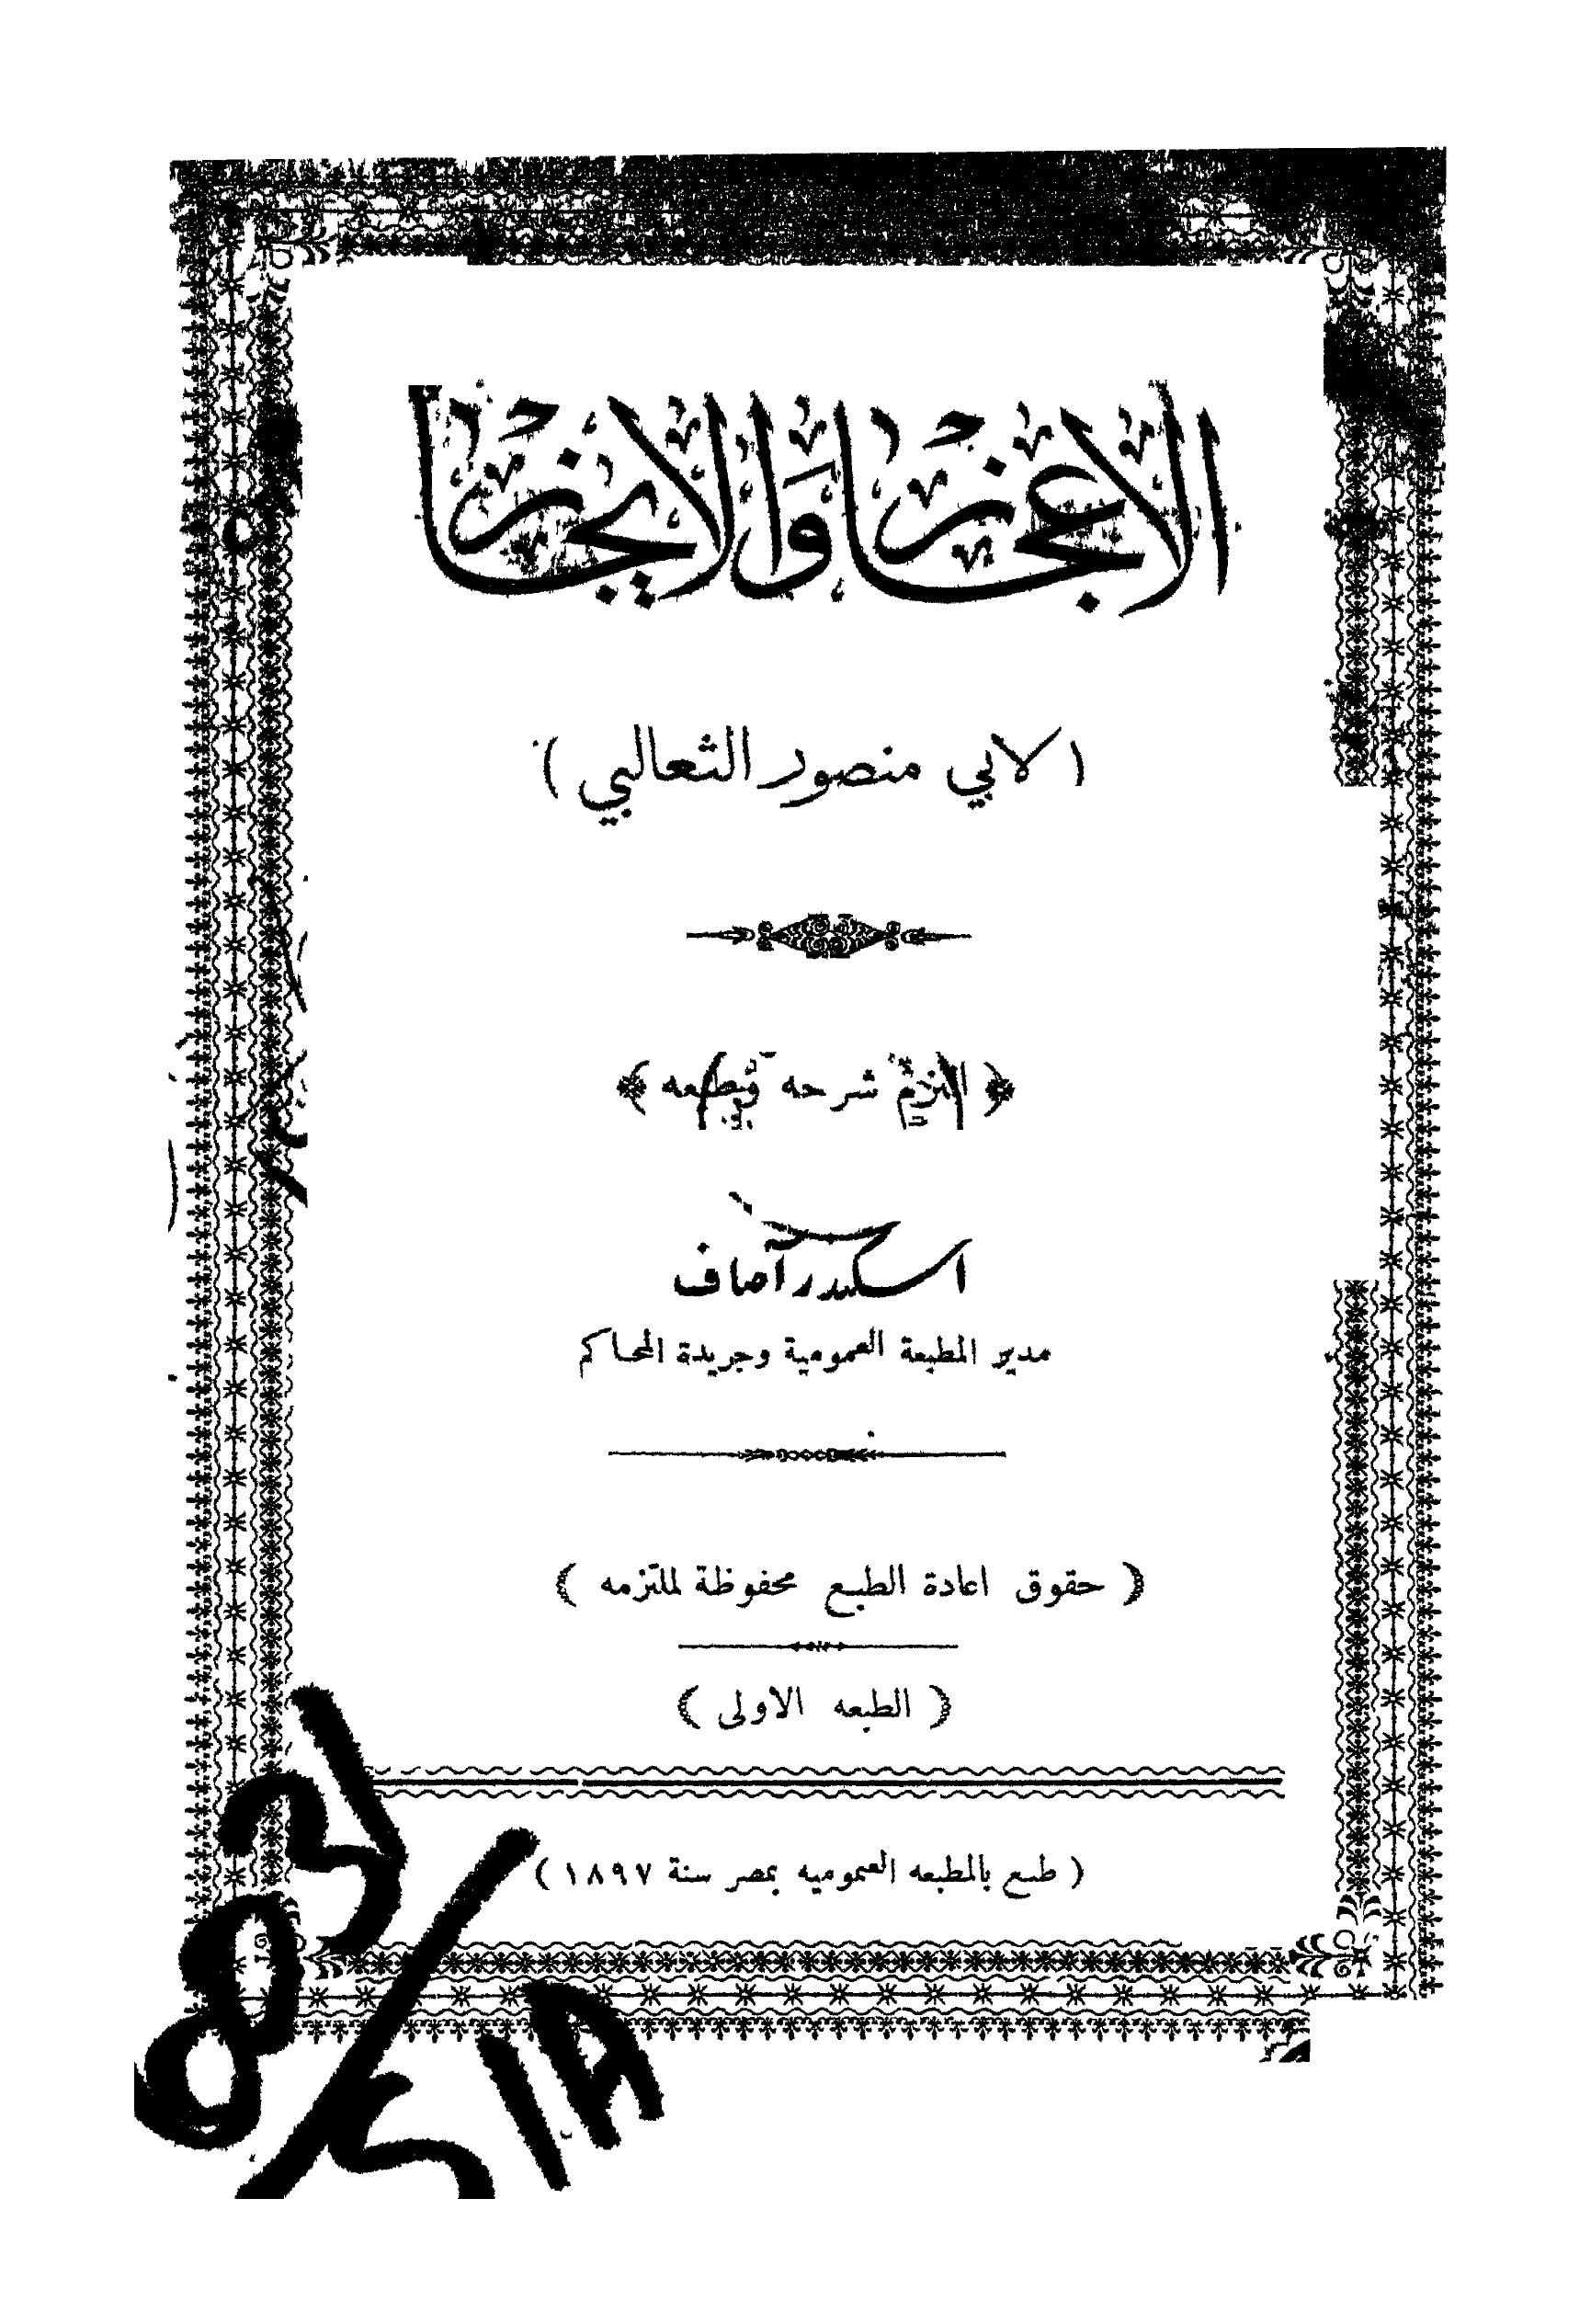 الاعجاز والايجاز
(لابي منصور الثعالبي)
﴿ التزم شرحه وطبعه ﴾
اسكندر آصاف
مدير المطبعة العمومية وجريدة المحاكم
( حقوق اعادة الطبع محفوظة لملتزمه )
( الطبعه الاولى )
( طبع بالمطبعه العموميه بمصر سنة ١٨٩٧ )